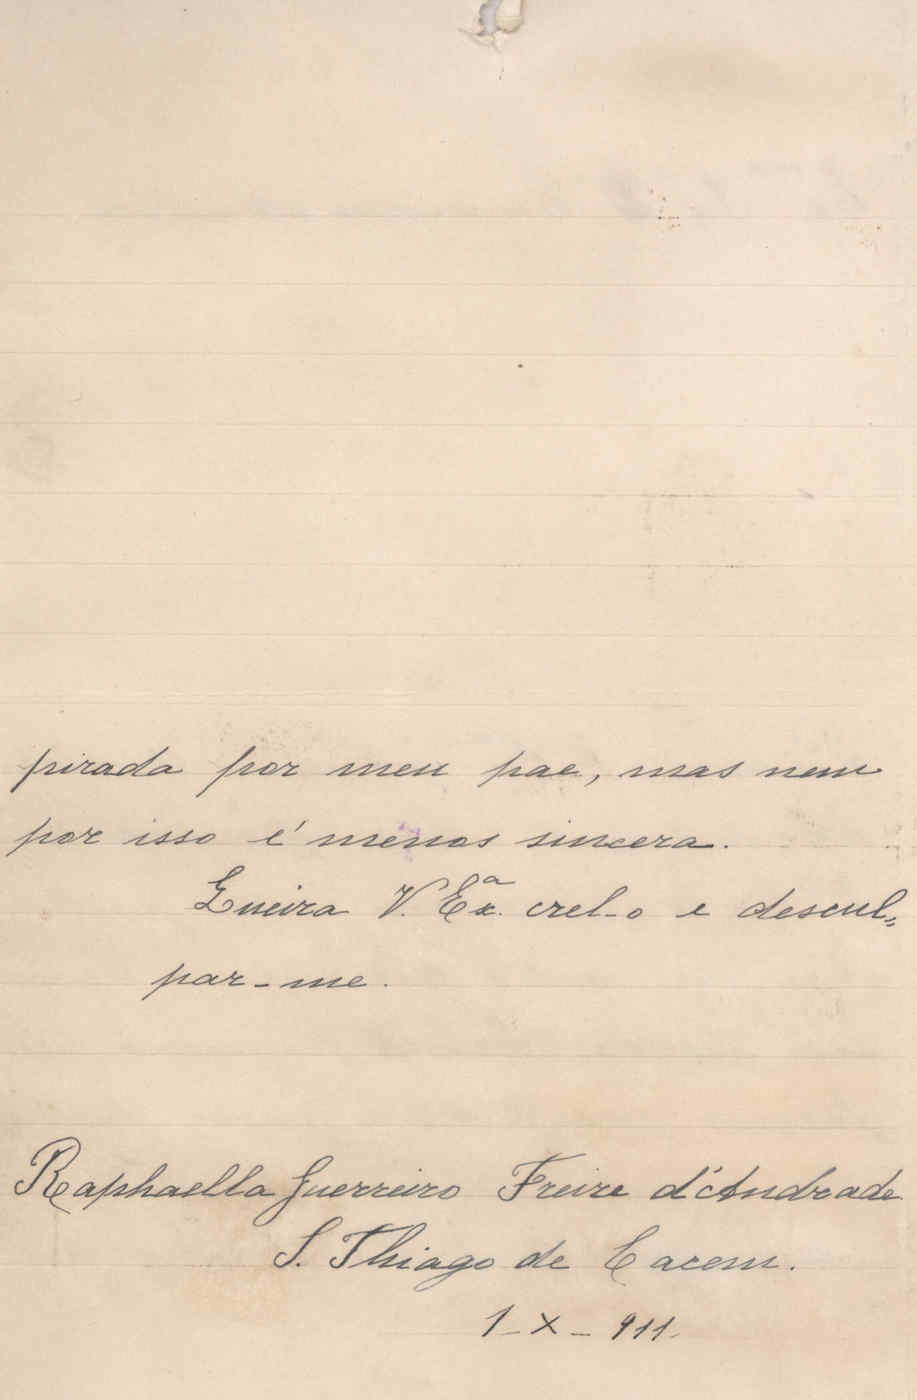 pirada por meu pae, mas nem
por isso é menos sincera.
Queira V. Exª. crel-o e descul-
par-me.
Raphaella Guerreiro Freire d'Andrade
S. Thiago de Cacem.
1-X-911.